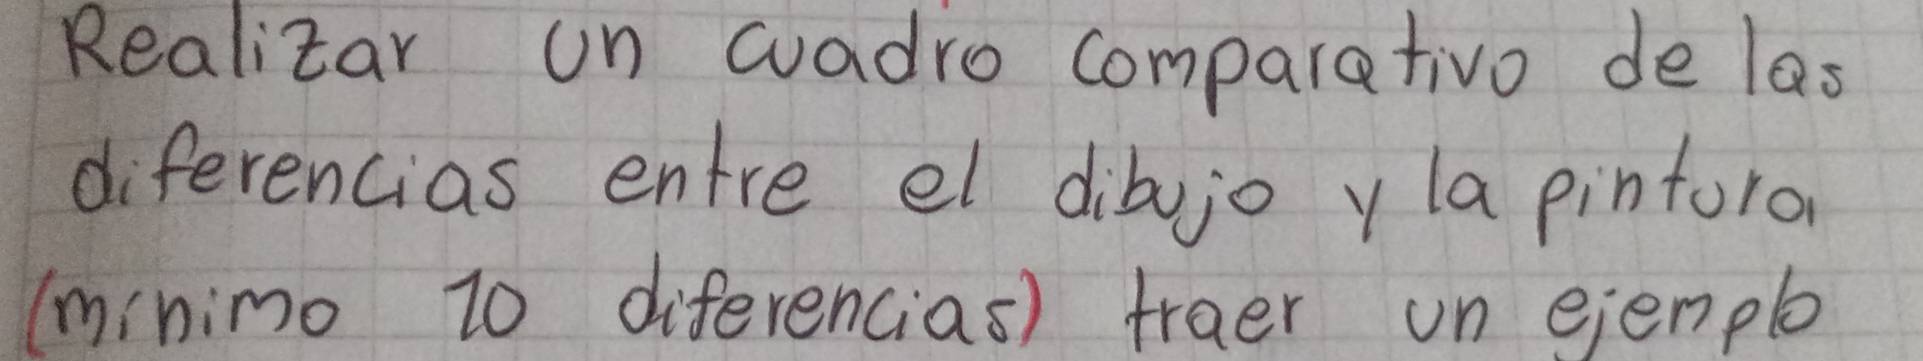 Realizar un cuadro comparativo de las
diferencias entre el dibujo y la pintura
(minimo 10 diferencias) traer un ejemplo